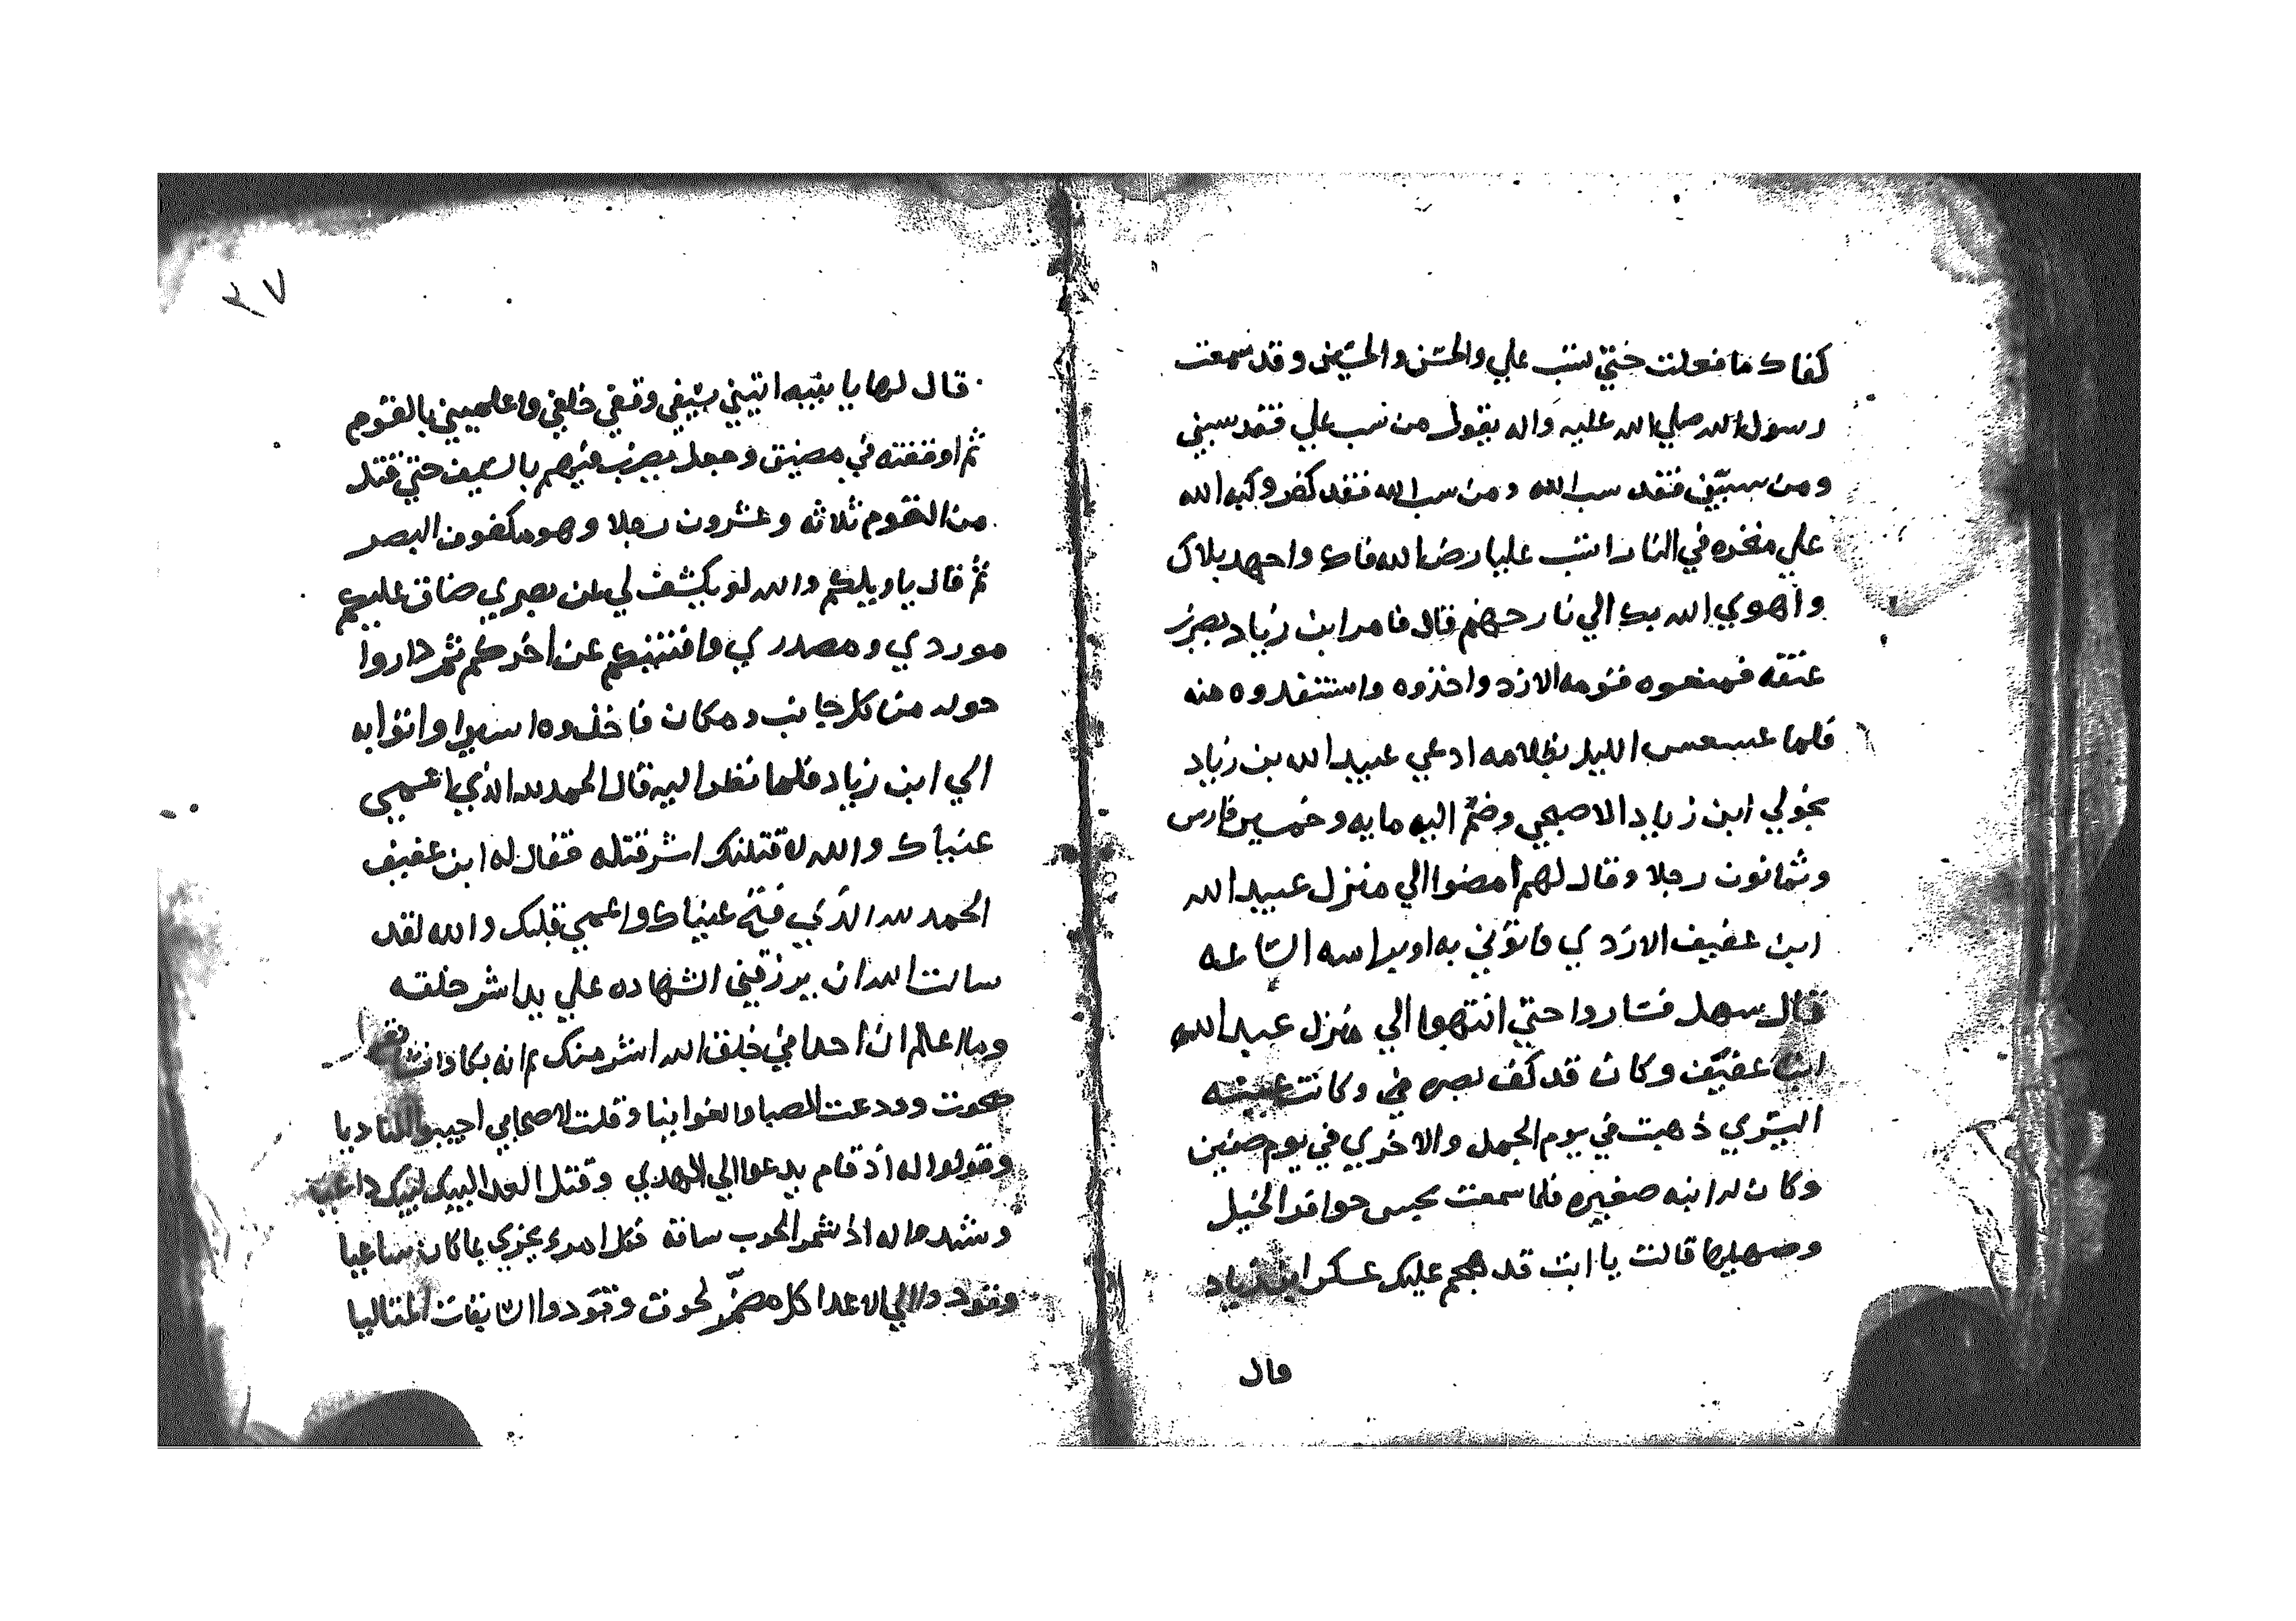 كفاك ما فعلت حتي تسب علي والحسن والحسين وقد سمعت
رسول الله صلي الله عليه واله يقول من سب علي فقد سبني
ومن سبني فقد سب الله ومن سب الله فقد كفر وكبه الله
علي منخره في النار اتسب عليا رض الله فاك واجهد بلاك
واهوي الله بك الي نار جهنم قال فامر ابن زياد بضرب
عنقه فمنعوه قومه الازد واخذوه واستنقدوه منه
فلما عسعس الليل بظلامه ادعي عبيد الله بن زياد
بخولي ابن زياد الاصبحي وضم اليه مايه وخمسين فارس
وثمانون رجلا وقال لهم امضوا الي منزل عبيد الله
ابن عفيف الازدي فاتوني به او براسه الساعه
قال سهل فساروا حتي انتهوا الي منزل عبيد الله
ابن عفيف وكان قد كف بصره وكانت عينه
اليسري ذهبت في يوم الجمل والاخري في يوم صفين
وكان له ابنه صغيره فلما سمعت بحس حوافد الخيل
وصهيلها قالت يا ابت قد هجم عليك عسكر ابن زياد
قال
٣٧
قال لها يا بنيه اتيني بسيفي وقفي خلفي واعلميني بالقوم
ثم اوقفته في مضيق وجعل يضرب فيهم بالسيف حتي قتل
من القوم ثلاثه وعشرون رجلا وهو مكفوف البصر
ثم قال يا ويلكم والله لو يكشف لي عن بصري ضاق عليكم
موردي ومصدري وافنيتكم عن اخركم ثم داروا
حوله من كل جانب ومكان فاخذوه اسيرا واتوا به
الي ابن زياد فلما نظر اليه قال الحمد لله الذي اعمي
عيناك والله لاقتلنك اشر قتله فقال له ابن عفيف
الحمد لله الذي فتح عيناك واعمي قلبك والله لقد
سالت الله ان يرزقني الشهاده علي يد اشر خلقه
وما اعلم ان احدا في خلق الله اشر منك ثم انه بكا وانشا
صحوت وودعت الصبا والغوانيا وقلت لاصحابي اجيبوا المناديا
وقولوا له اذ قام يدعوا الي الهدي وقتل العدا لبيك لبيك داعيا
وشد ماله اذ شمر الحرب ساقه فكل امرء يجزي بما كان ساعيا
وقود الي الاعدا كل مضمر لحوق وقودوا السابقات المتاليا